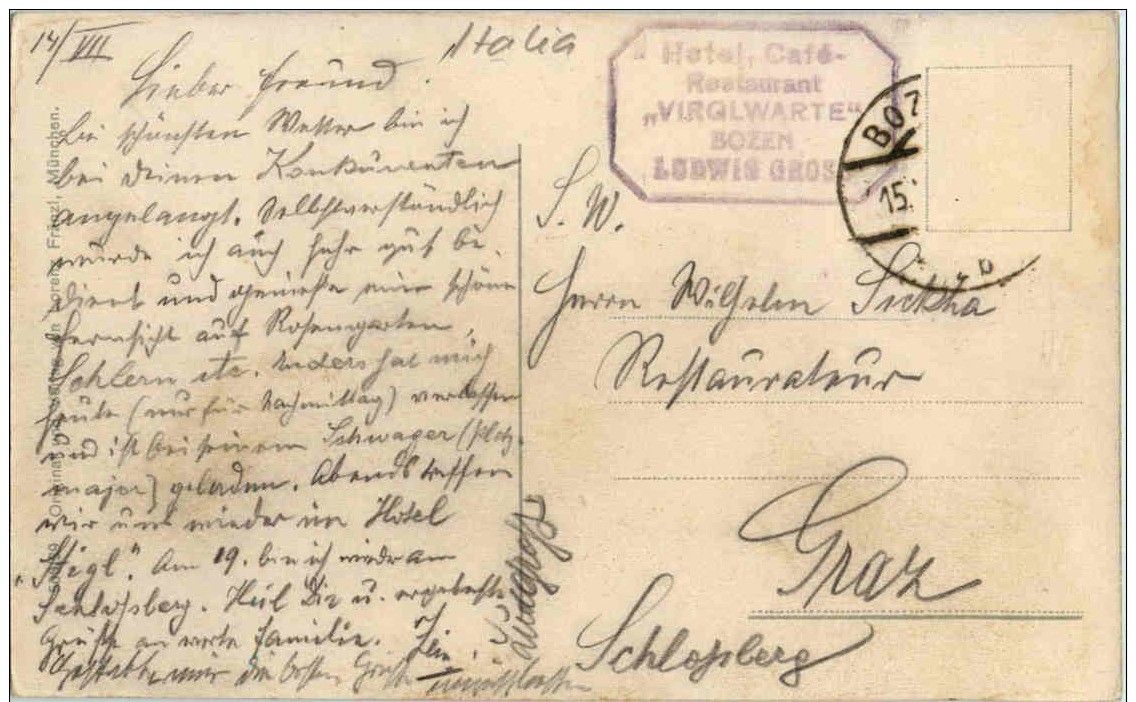 14/VII
Italia
Lieber Freund.
Bei schönsten Wetter bin ich
bei deinen Konkurrenten
angelangt. Selbstverständlich
wurde ich auch sehr gut be-
dient und genieße eine schöne
Fernsicht auf Rosengarten,
Schlern etc. Anders hat mich
heute (nur für Nachmittag) verlassen
und ist bei seinem Schwager (Platz-
major) geladen. Abends treffen
wir uns wieder im Hotel
„Stigl". Am 19. bin ich wieder am
Schloßberg. Heil Dir u. ergebenste
Grüße an werte Familie.
die besten Grüße
Hotel, Café-
Restaurant
„VIRGLWARTE"
BOZEN
LUDWIG GROS
BOZ
15.
S. W.
Herrn Wilhelm Sickha
Restaurateur
Graz
Schloßberg
Lorenz Fränzl, München.